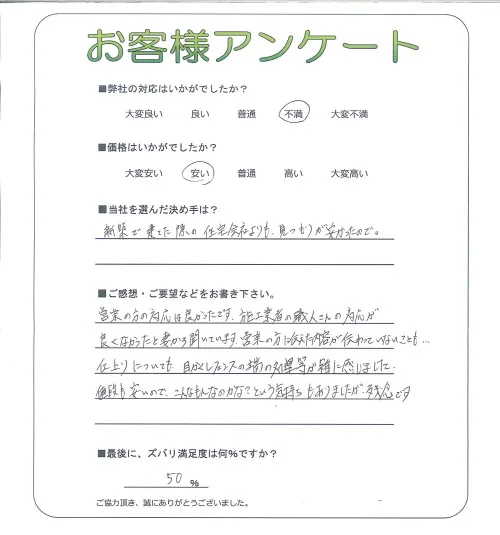 お客様アンケート
■弊社の対応はいかがでしたか？
大変良い 良い 普通 不満 大変不満
■価格はいかがでしたか？
大変安い 安い 普通 高い 大変高い
■当社を選んだ決め手は？
新築で建てた際の住宅会社よりも、見つもりが安かったので。
■ご感想・ご要望などをお書き下さい。
営業の方の対応は良かったです。施工業者の職人さんの対応が
良くなかったと妻から聞いています。営業の方に伝えた内容が伝わっていないことも…
仕上りについても、目かくしフェンスの端の処理等が雑に感じました。
値段も安いので、こんなもんなのかな？という気持ちもありましたが、残念です
■最後に、ズバリ満足度は何％ですか？
50 %
ご協力頂き、誠にありがとうございました。